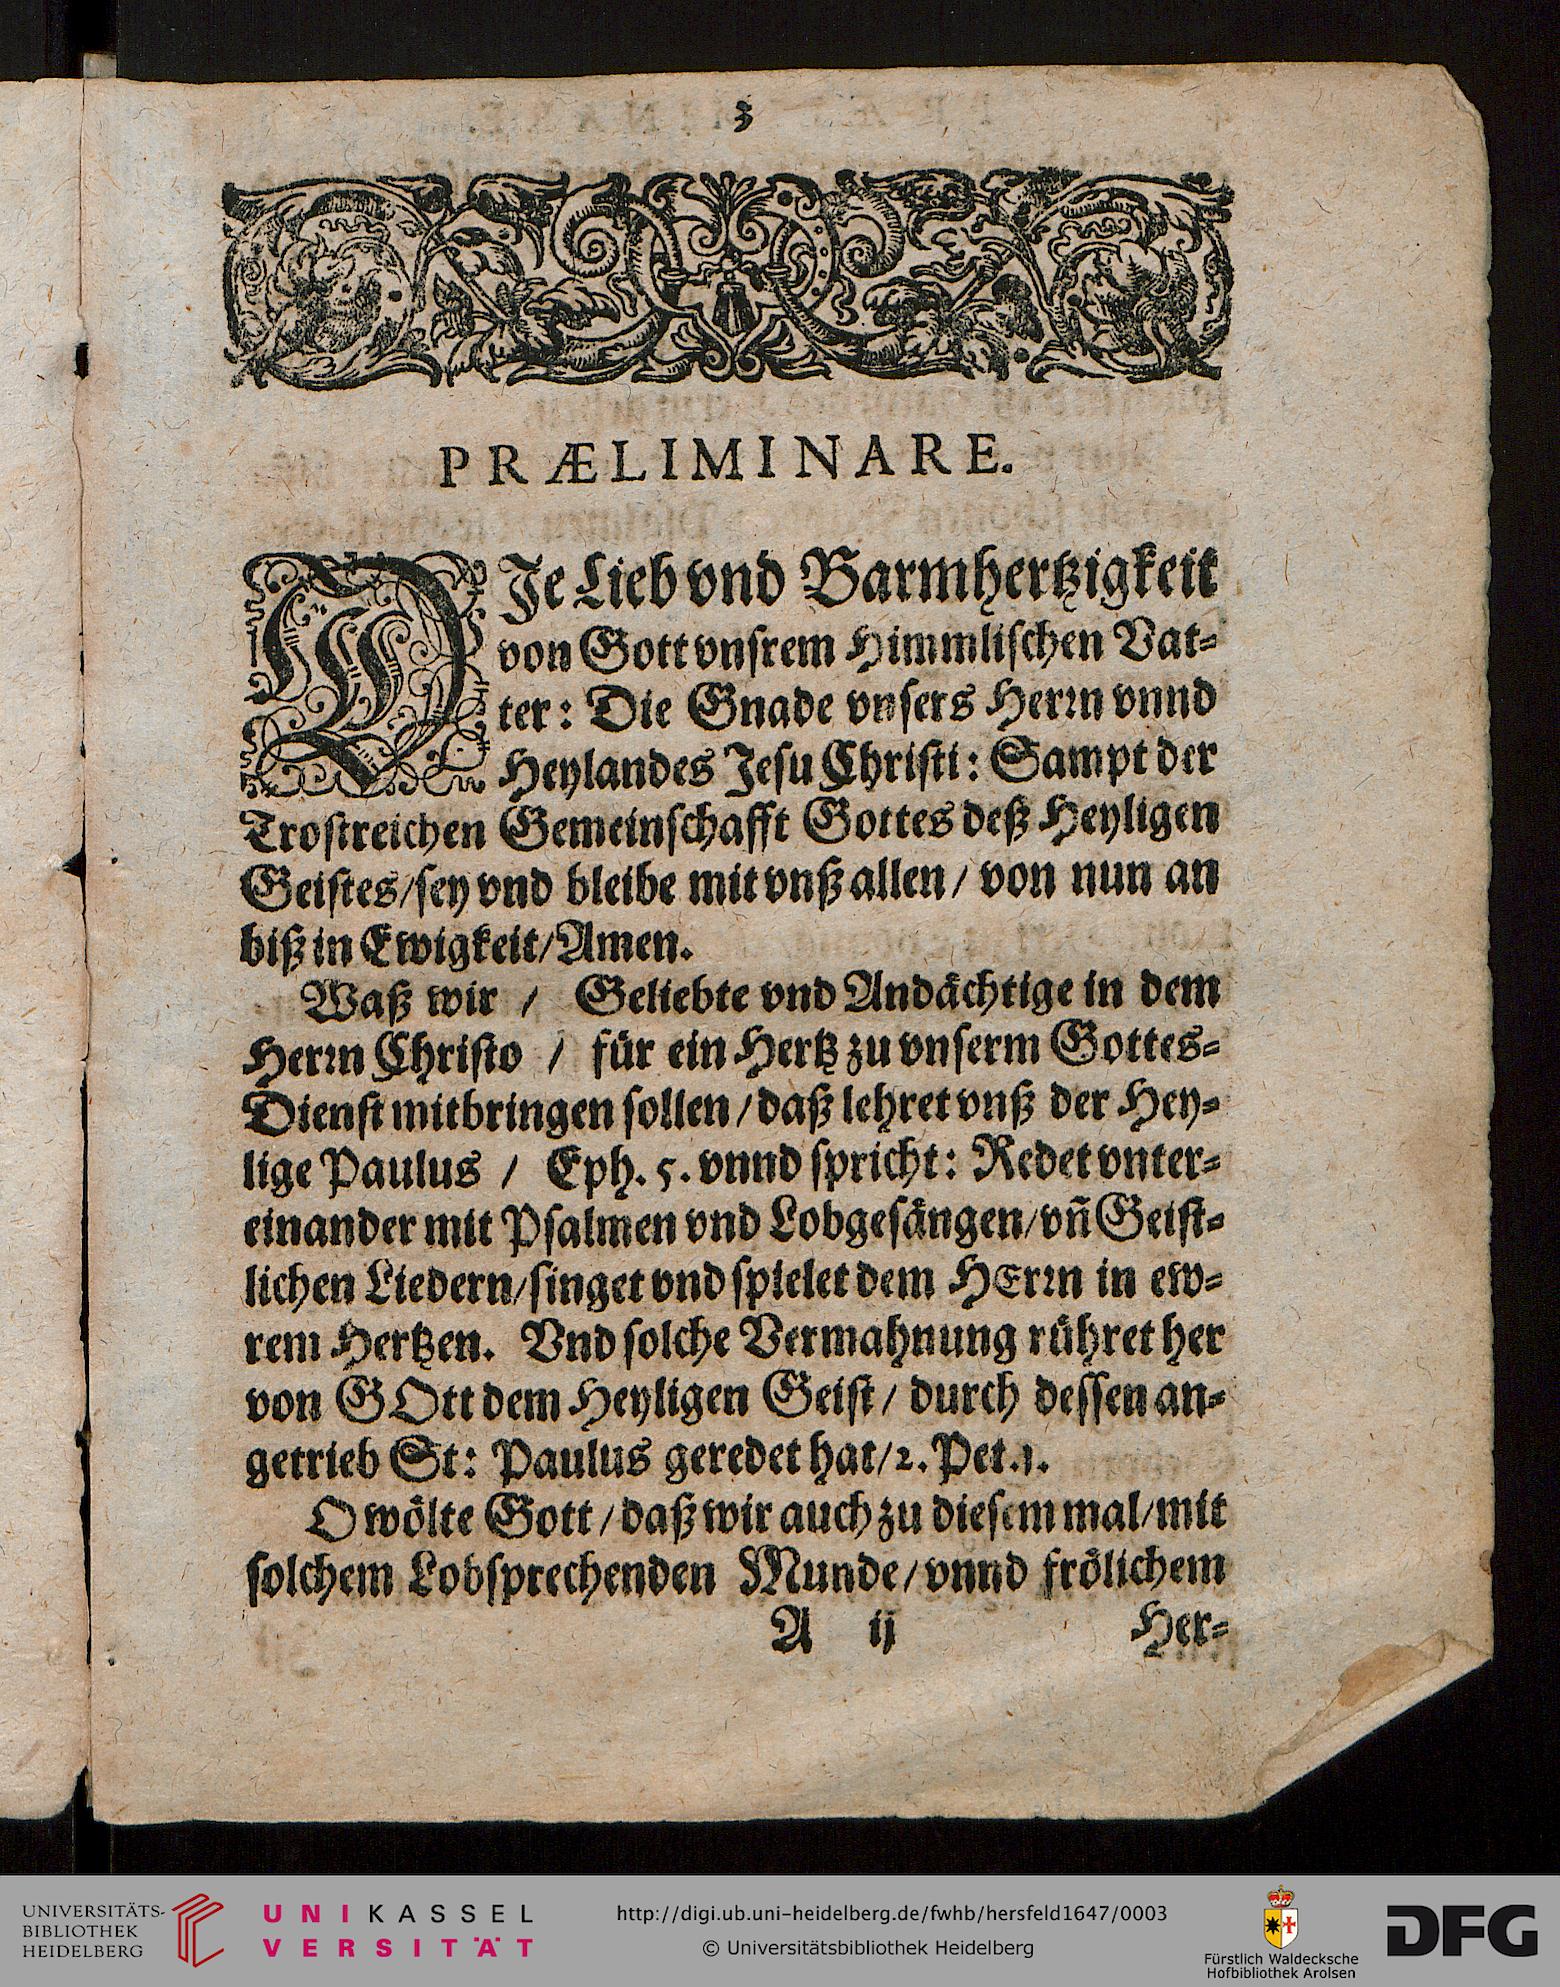 3
PRÆLIMINARE.
DJe Lieb vnd Barmhertzigkeit
von Gott vnsrem Himmlischen Vat-
ter: Die Gnade vnsers Herrn vnnd
Heylandes Jesu Christi: Sampt der
Trostreichen Gemeinschafft Gottes deß Heyligen
Geistes/sey vnd bleibe mit vnß allen/ von nun an
biß in Ewigkeit/Amen.
Waß wir / Geliebte vnd Andächtige in dem
Herrn Christo / für ein Hertz zu vnserm Gottes-
Dienst mitbringen sollen/daß lehret vnß der Hey-
lige Paulus / Eph. 5. vnnd spricht: Redet vnter-
einander mit Psalmen vnd Lobgesängen/vñ Geist-
lichen Liedern/singet vnd spielet dem HErrn in ew-
rem Hertzen. Vnd solche Vermahnung rühret her
von GOtt dem Heyligen Geist/ durch dessen an-
getrieb St: Paulus geredet hat/2. Pet. 1.
O wölte Gott/daß wir auch zu diesem mal/mit
solchem Lobsprechenden Munde/vnnd frölichem
A ij Her-
UNIVERSITÄTS-
BIBLIOTHEK
HEIDELBERG
UNIKASSEL
VERSITÄT
http://digi.ub.uni-heidelberg.de/fwhb/hersfeld1647/0003
© Universitätsbibliothek Heidelberg
Fürstlich Waldecksche
Hofbibliothek Arolsen
DFG